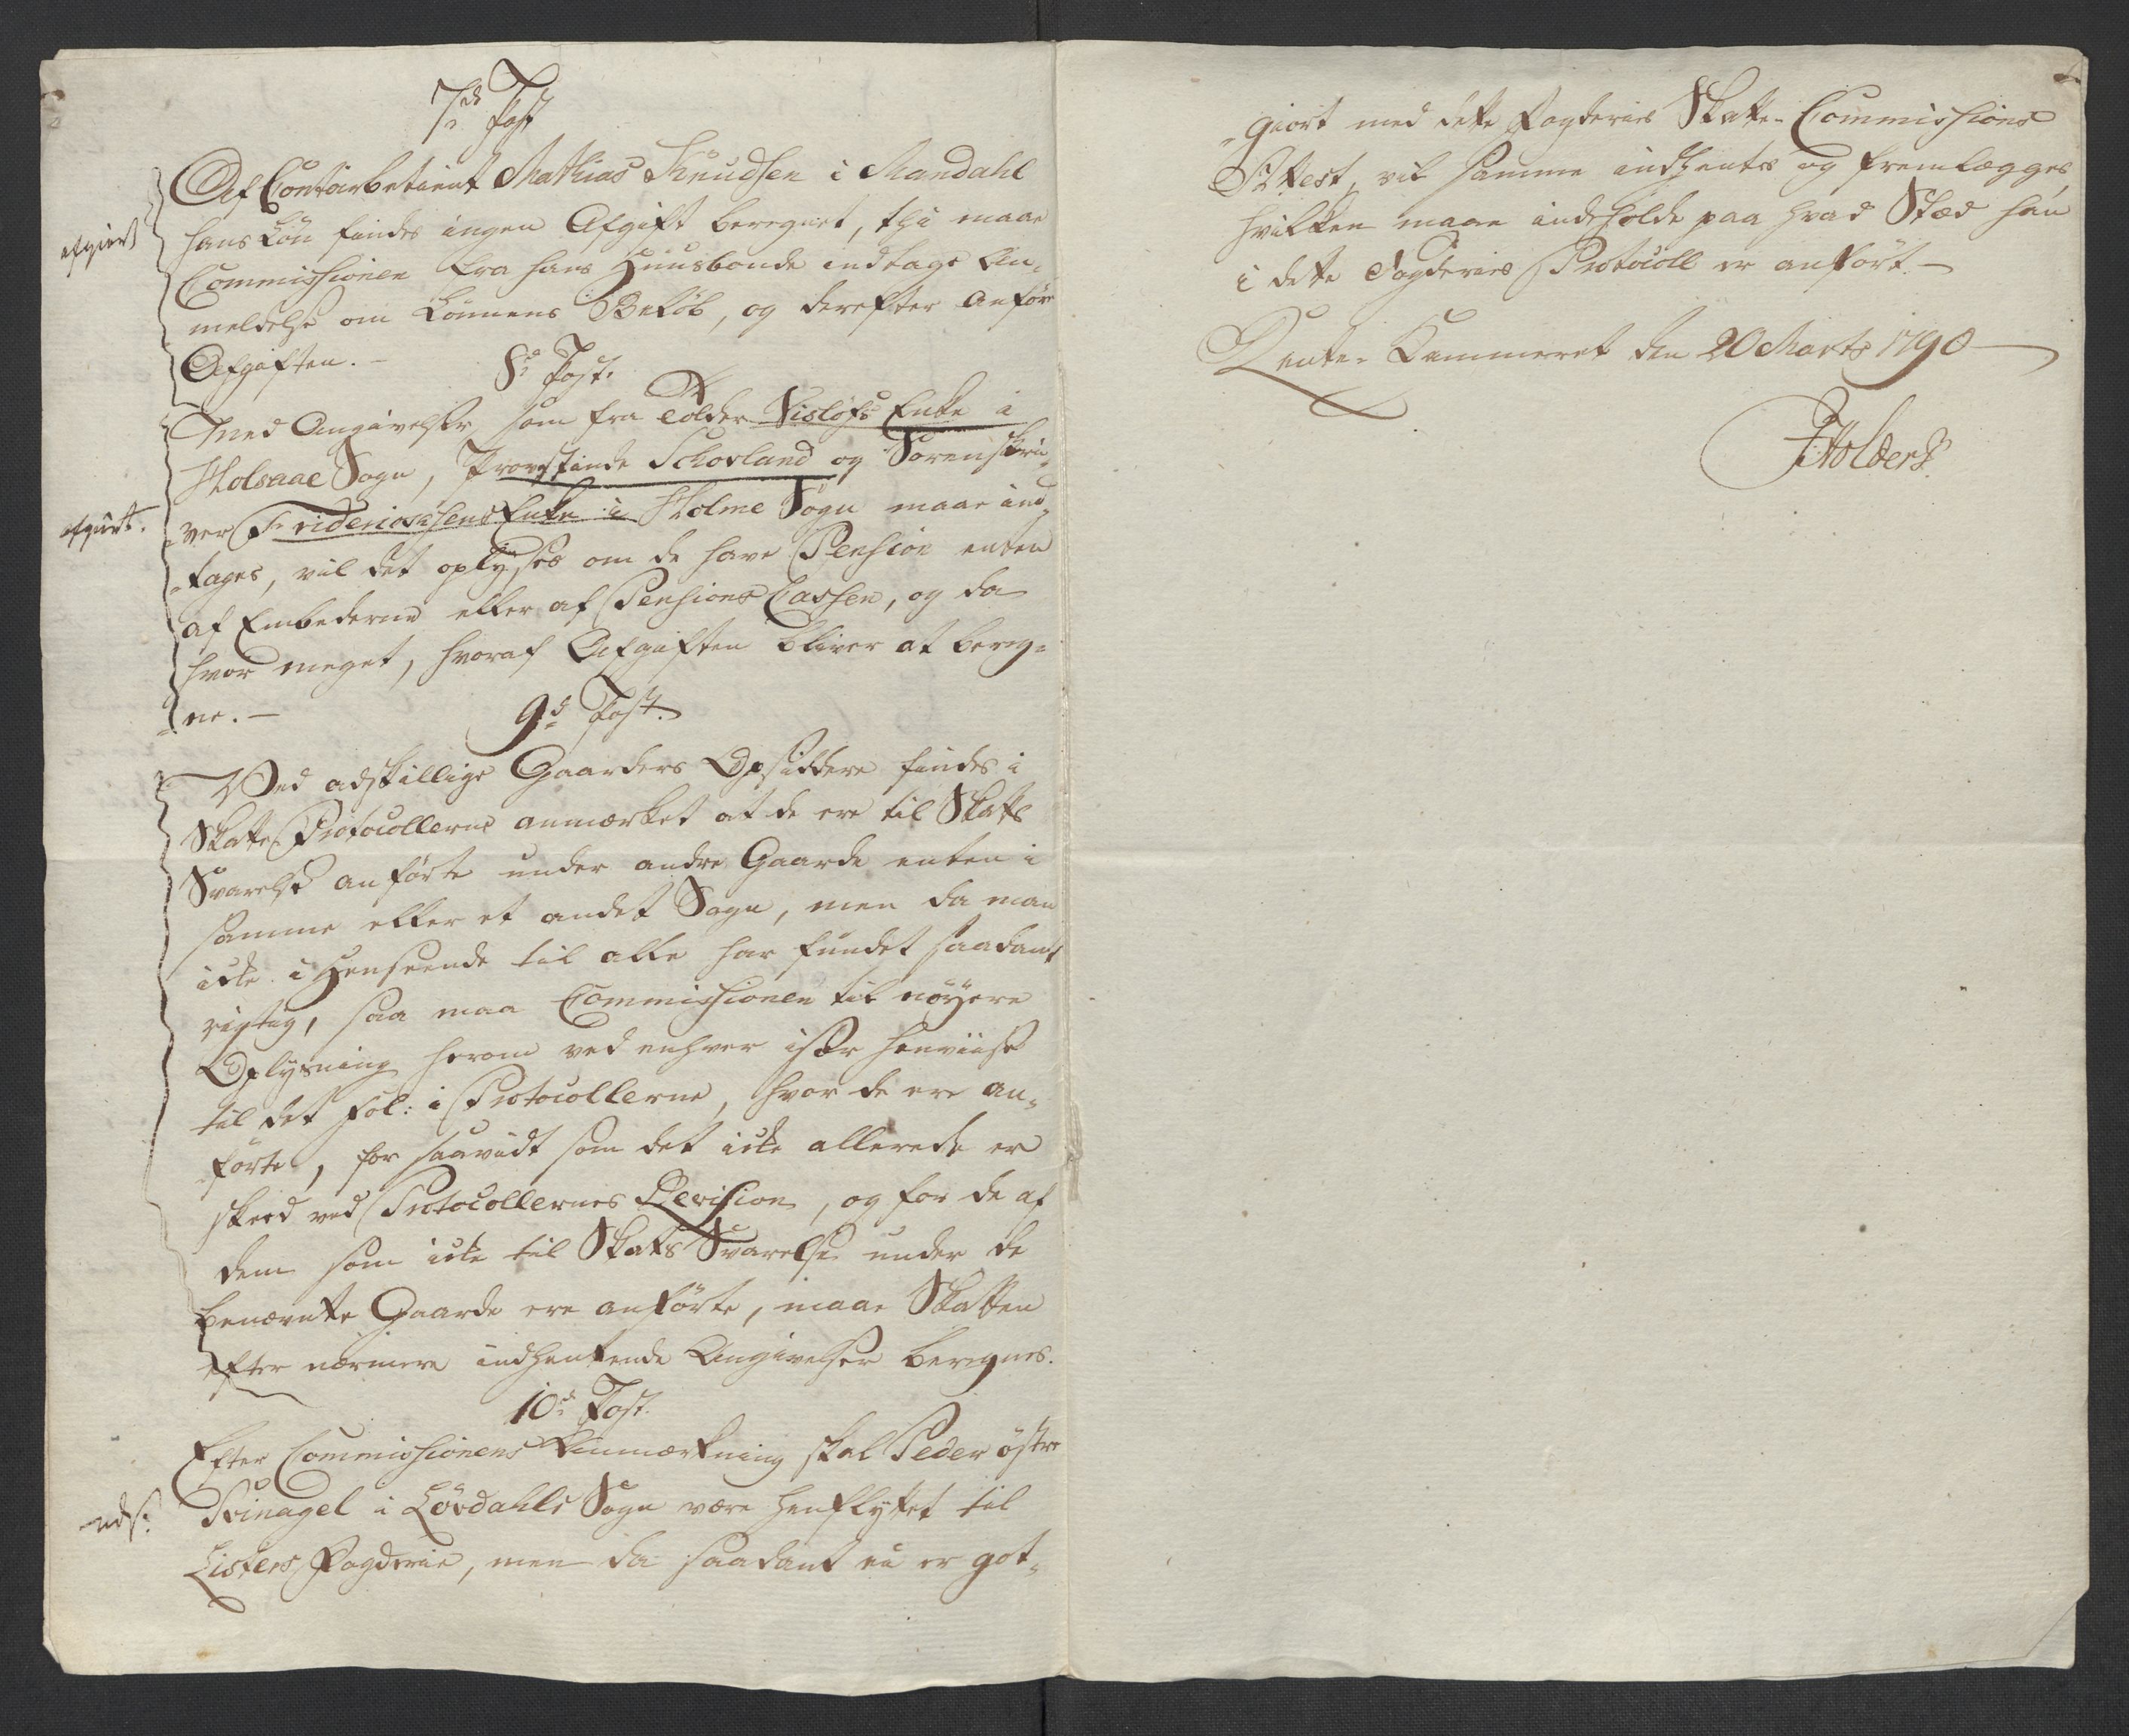 7de Post
Af Contoirbetient Mathias Knudsen i Mandahl
afgiort
hans Løn findes ingen Afgift beregnet, thi maae
Commissionen fra hans Huusbonde indtage An-
meldelse om Lønnens Beløb, og derefter anføre
Afgiften. —
8de Post.
Med Angivelser som fra Tolder Nisløfs Enke i
Holsaae Sogn, Provstinde Schovland og Sorenskri-
afgiort.
ver Friderichsens Enke i Holme Sogn maae ind-
tages, vil det oplyses om de have Pension enten
af Embederne eller af Pensions Cassen, og da
hvor meget, hvoraf Afgiften bliver at bereg-
ne. —
9de Post.
Ved adskillige Gaarders Opsiddere findes i
Skatte Protocollerne anmærket at de ere til Skatts
Svarelse anførte under andre Gaarde enten i
samme eller et andet Sogn, men da man
icke i Henseende til alle har fundet saadant
rigtig, saa maa Commissionen til nøyere
Oplysning herom ved enhver især henviise
til det Fol: i Protocollerne, hvor de ere an-
førte, for saavidt som det icke allerede er
skeed ved Protocollernes Revision, og for de af
dem som icke til Skatts Svarelse under de
benævnte Gaarde ere anførte, maae Skatten
efter nærmere indhentende Angivelser beregnes.
10de Post.
Efter Commissionens Anmærkning skal Peder østre
Svinagel i Løvdahls Sogn være henflyttet til
Listers Fogderie, men da saadant ei er got-
giort med dette Fogderies Skatte-Commissions
Attest, vil samme indhentes og fremlægges,
hvilken maae indeholde paa hvad Stæd han
i dette Fogderies Protocoll er anført. —
Rente-Kammeret den 20 Marts 1790 —